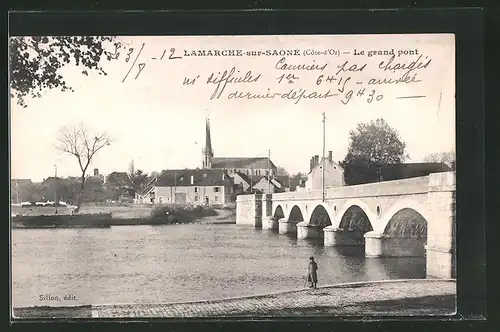 LAMARCHE-SUR-SAONE (Côte-d'Or) — Le grand pont
3/7 - 12
Courriers pas chargés
ni difficiles 1er 6h15 - arrivée
dernier départ 9h30 —
Sillon, édit.